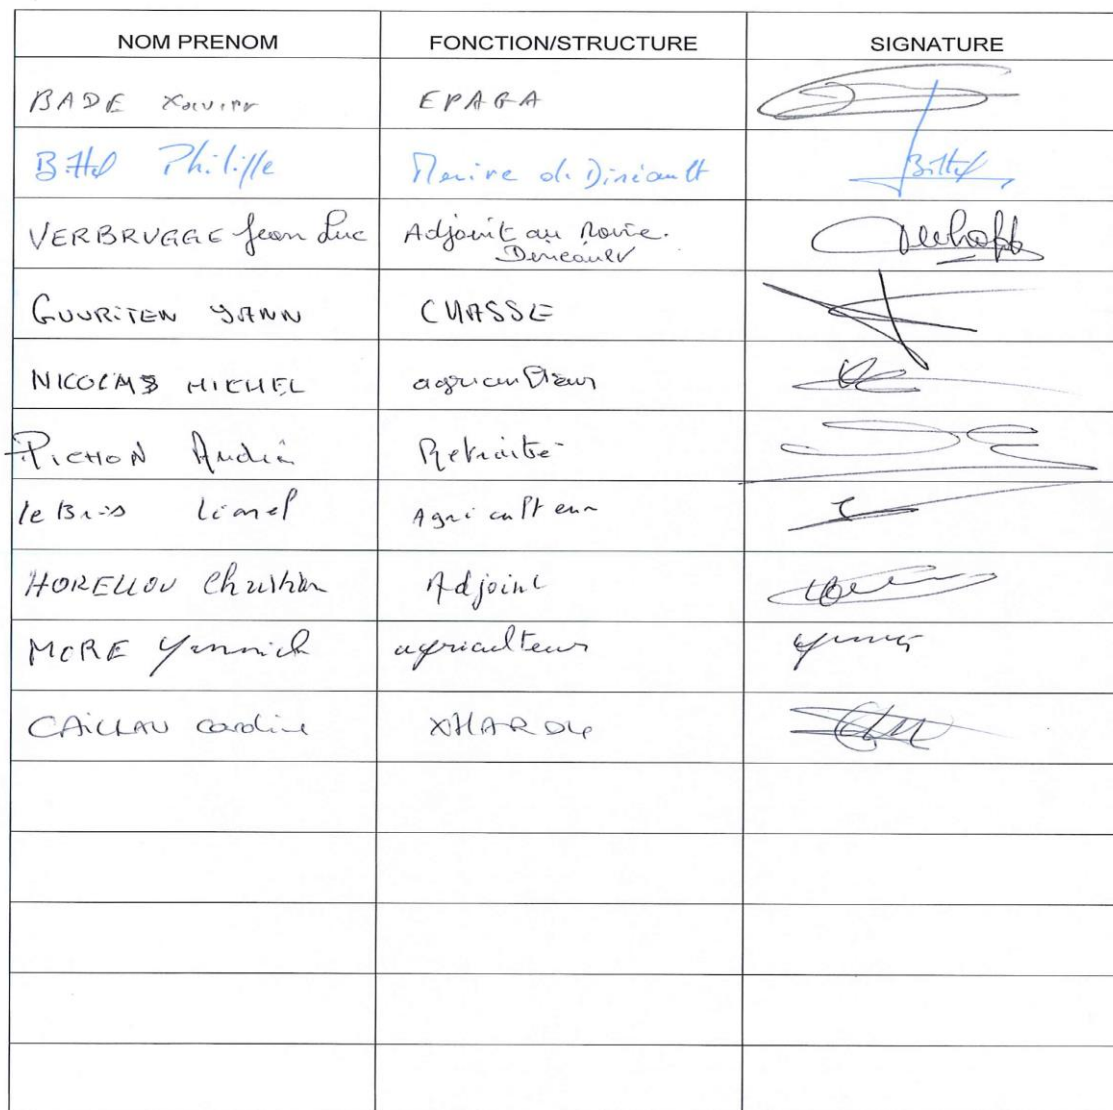 NOM PRENOM FONCTION/STRUCTURE SIGNATURE
BADE Xavier EPAGA
Bittel Philippe Maire de Dinéault Bittel
VERBRUGGE Jean Luc Adjoint au Maire.
Dinéault
GUURITEN YANN CHASSE
NICOLAS MICHEL agriculteur
PICHON Andrée Retraité
le Bris Lionel Agriculteur
HORELLOU Christian Adjoint
MERE Yannick agriculteur
CAILLAU Caroline